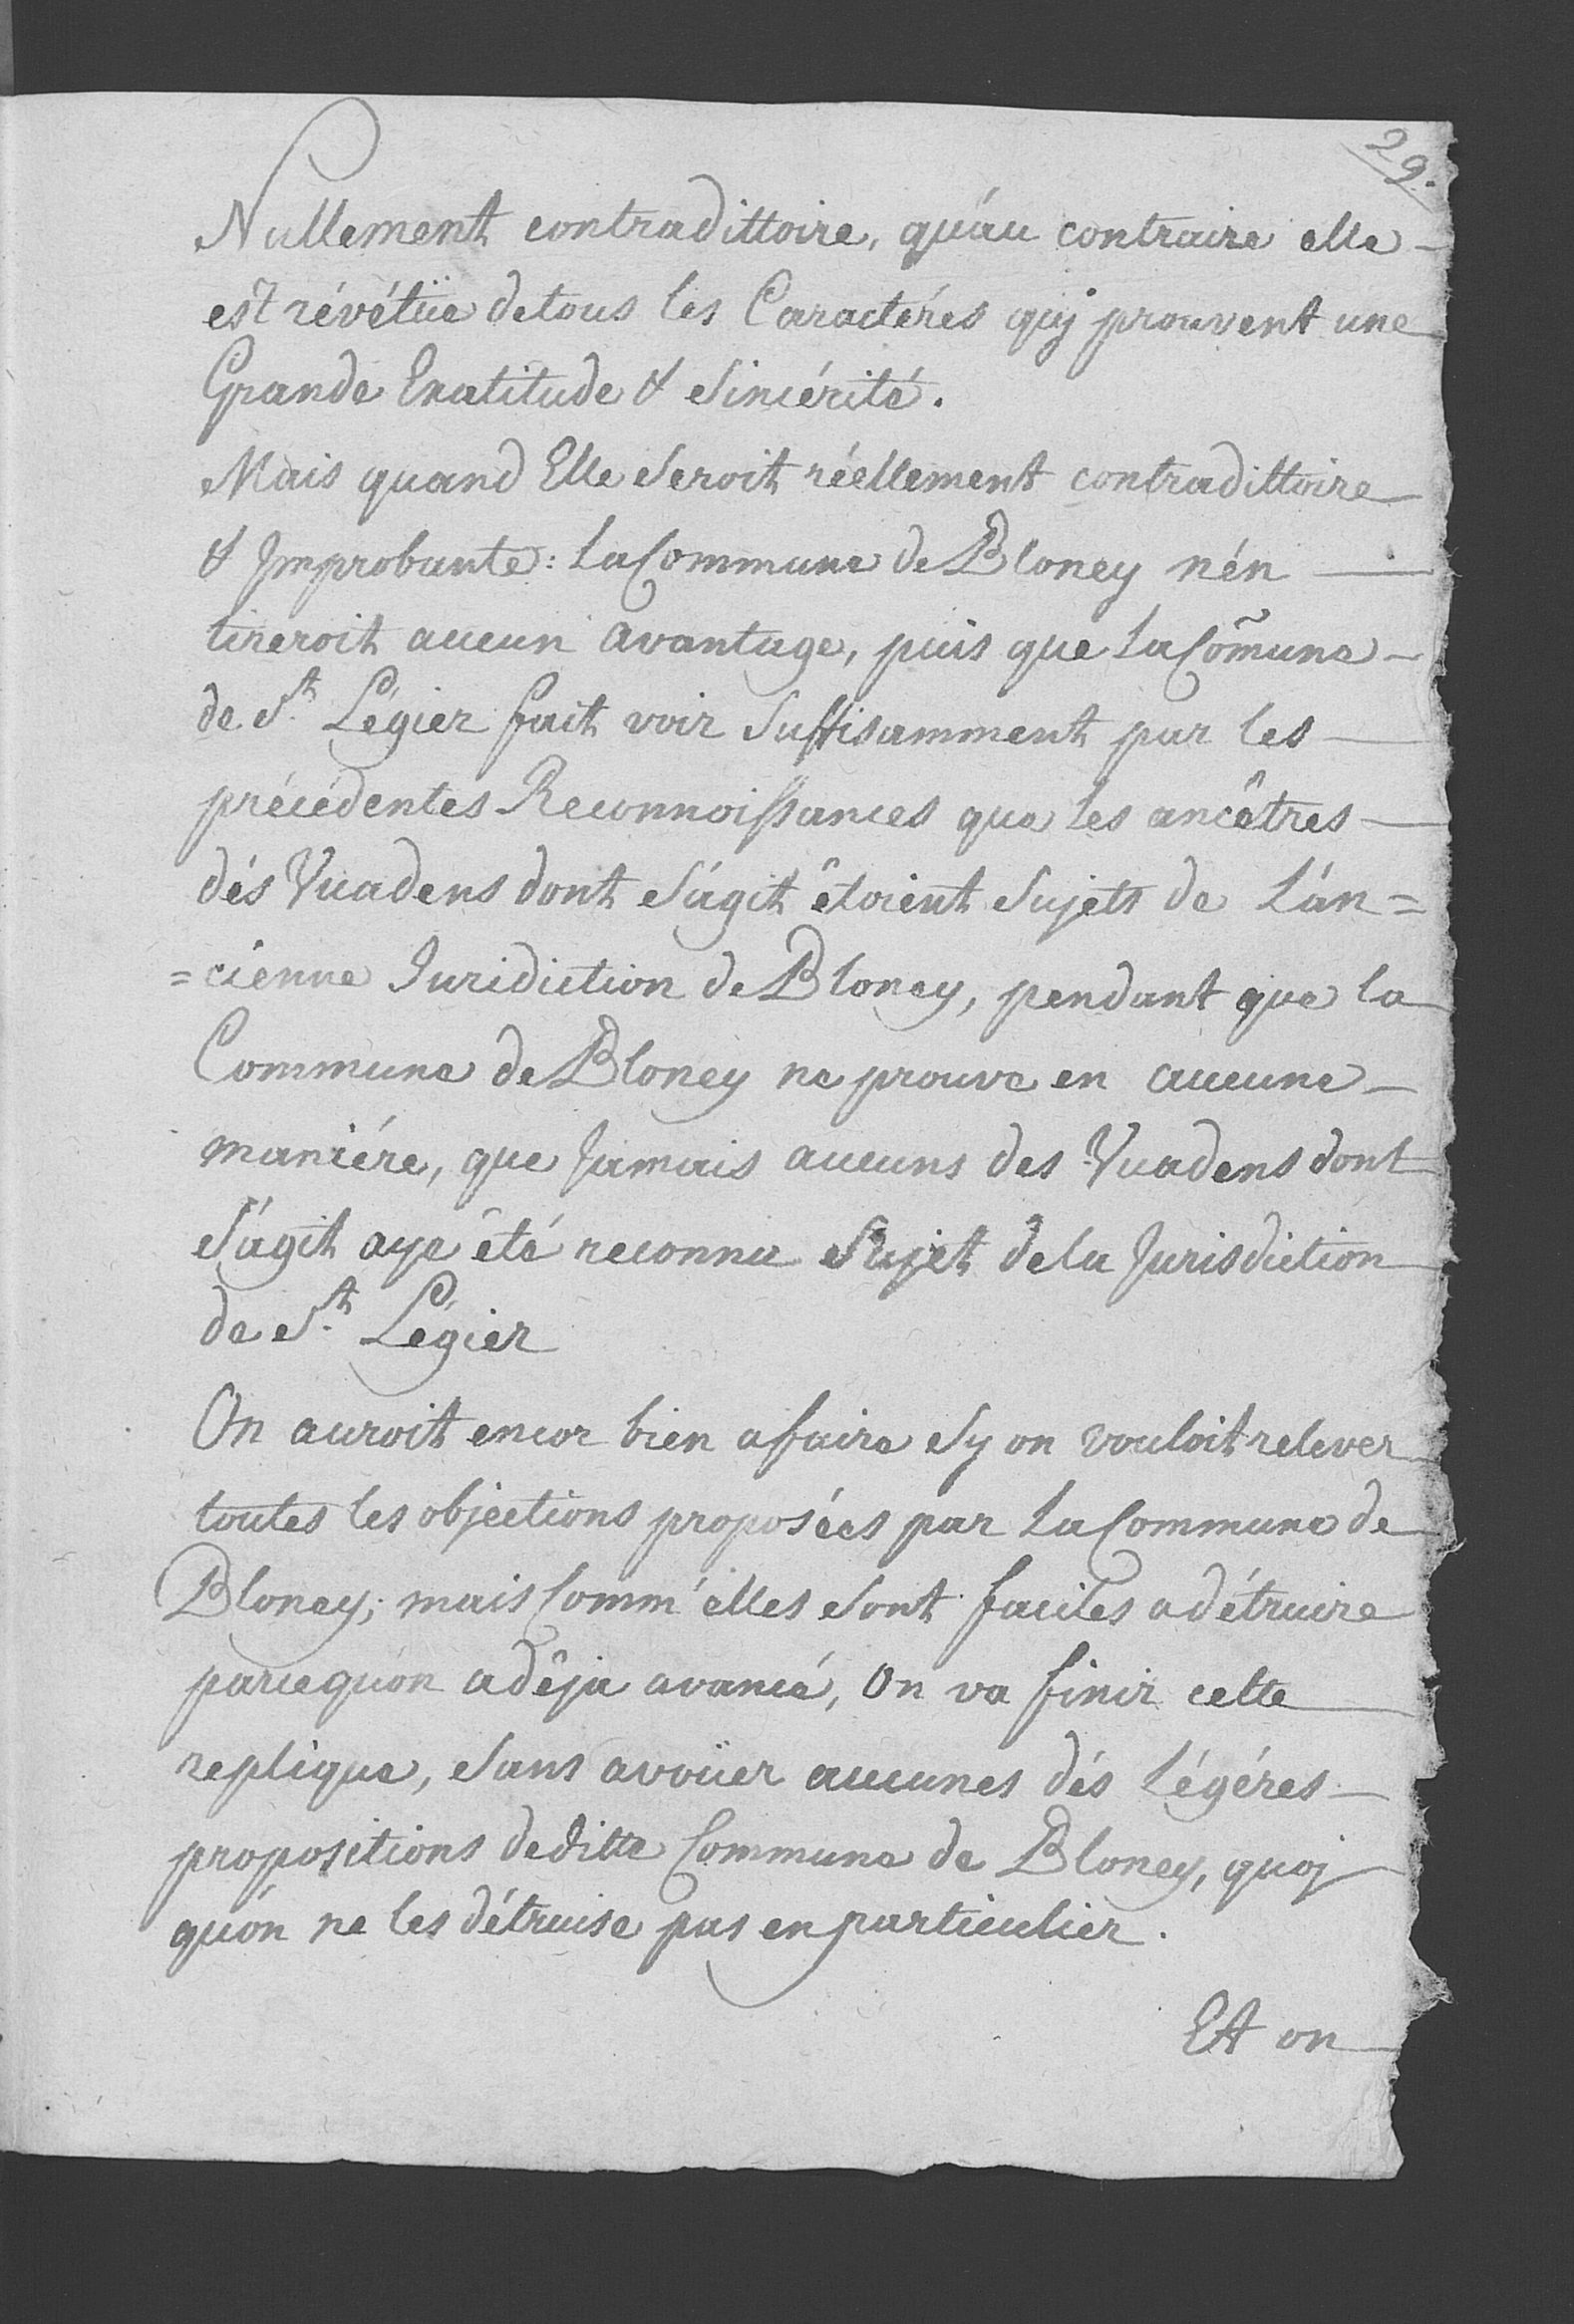 29.
Nullement contradittoire, qu'au contraire elle
est révétüe de tous les Caractéres quj prouvent une
Grande Exatitude & Sincérité.
Mais quand Elle Seroit réellement contradittoire
& Jmprobante: La Commune de Bloney n'én
tireroit aucun avantage, puis que La Com̃une
de St. Légier fait voir Suffisamment par les
précédentes Reconnoissances que les ancêtres
dés Vuadens dont S'agit êtoient Sujets de L'an=
=cienne Juridiction de Bloney, pendant que la
Commune de Bloney ne prouve en aucune
maniére, que Jamais aucuns des Vuadens dont
S'agit aye êté reconnu Sujet de la Jurisdiction
de St. Légier
On auroit encor bien a faire Sy on vouloit relever
toutes les objections proposées par La Commune de
Bloney; mais Comm'elles Sont faciles a détruire
parce qu'on a dêja avancé, On va finir cette
replique, Sans avoüer aucunes dés Légéres
propositions de ditte Commune de Bloney, quoj
qu'on ne les détruise pas en particulier.
Et on